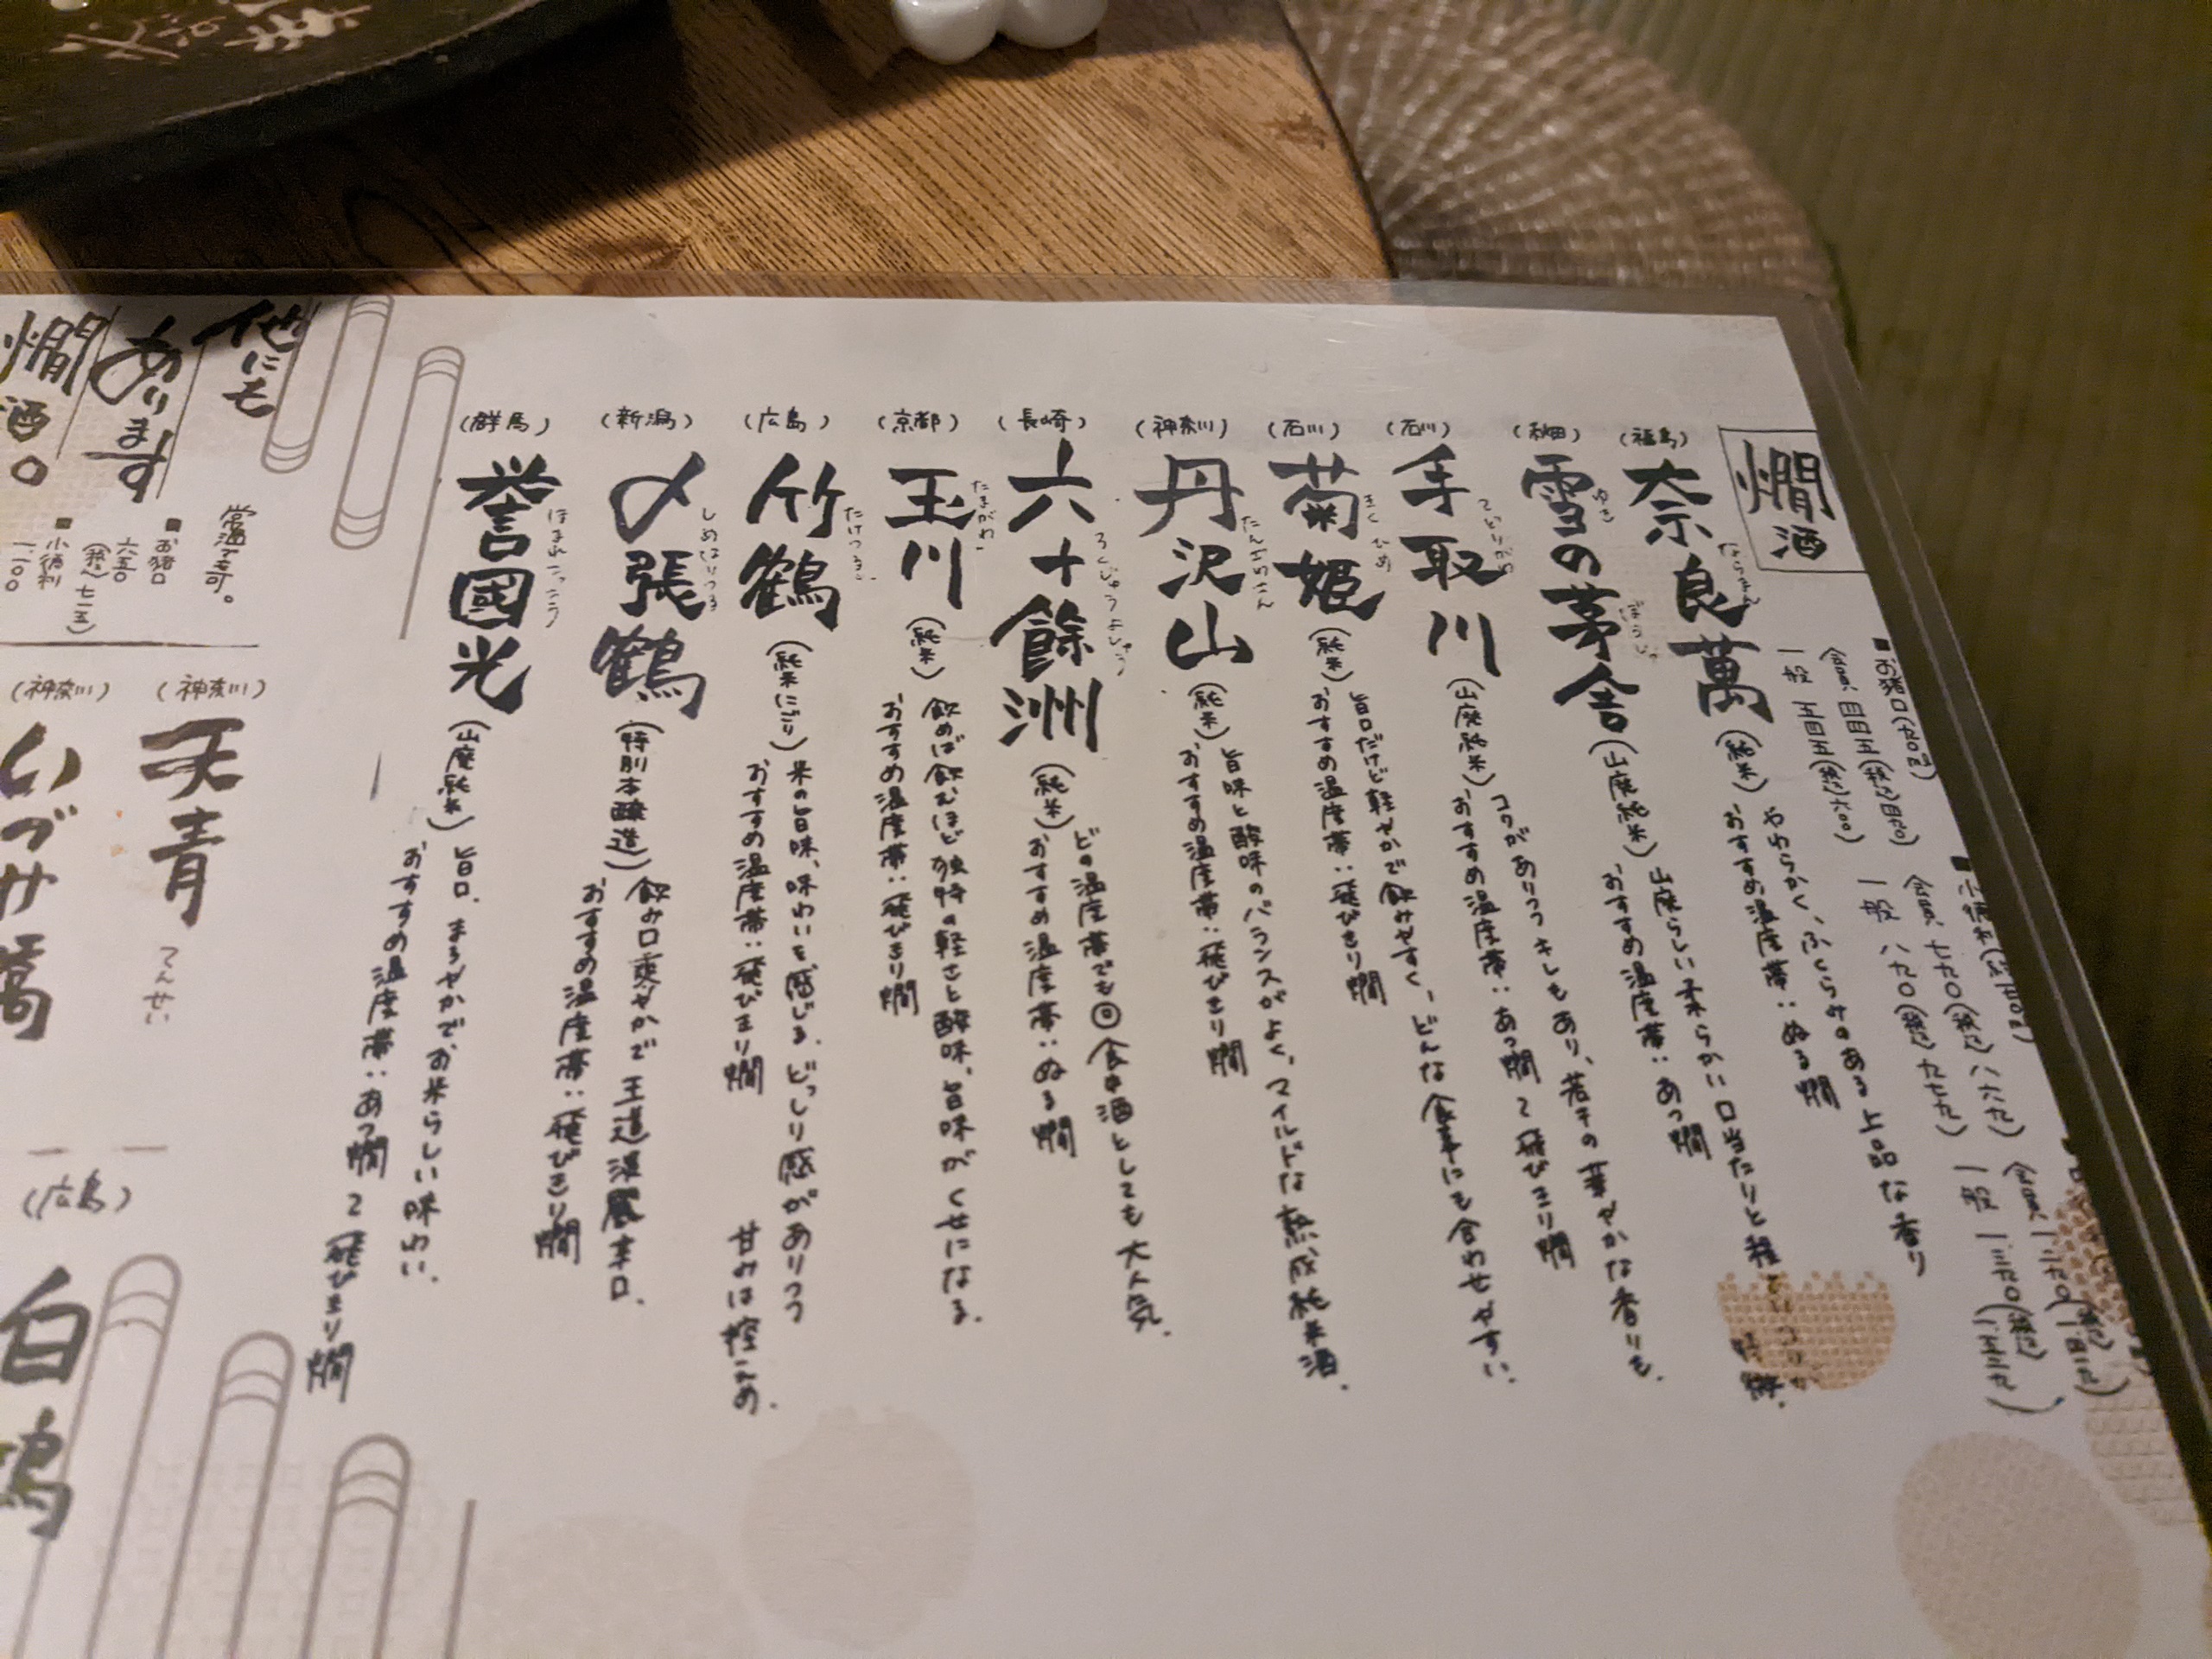 燗酒
■お猪口(九〇㎖)
会員 四四五(税込四九〇)
一般 五四五(税込六〇〇)
会員 七九〇(税込八六九)
一般 八九〇(税込九七九)
一般
(福島)
奈良萬
ならまん
(純米)
やわらかく、ふくらみのある上品な香り
おすすめ温度帯:ぬる燗
(秋田)
雪の茅舎
ゆき
ぼうしゃ
(山廃純米)
山廃らしい柔らかい口当たりと
おすすめ温度帯:あつ燗
(石川)
手取川
てどりがわ
(山廃純米)
コクがありつつキレもあり、若干の華やかな香りも.
おすすめ温度帯:あつ燗〜飛びきり燗
(石川)
菊姫
きくひめ
(純米)
旨口だけど軽やかで飲みやすく、どんな食事にも合わせやすい.
おすすめ温度帯:飛びきり燗
(神奈川)
丹沢山
たんざわさん
(純米)
旨味と酸味のバランスがよく、マイルドな熟成純米酒.
おすすめ温度帯:飛びきり燗
(長崎)
六十餘洲
ろくじゅうよしゅう
(純米)
どの温度帯でも◎食中酒としても大人気.
おすすめ温度帯:ぬる燗
(京都)
玉川
たまがわ
(純米)
飲めば飲むほど独特の軽さと酸味、旨味がくせになる.
おすすめ温度帯:飛びきり燗
(広島)
竹鶴
たけつる
(純米にごり)
米の旨味、味わいを感じる.どっしり感がありつつ
甘みは控えめ.
おすすめ温度帯:飛びきり燗
(新潟)
〆張鶴
しめはりつる
(特別本醸造)
飲み口柔やかで王道淡麗辛口.
おすすめ温度帯:飛びきり燗
(群馬)
誉國光
ほまれこっこう
(山廃純米)
旨口.まろやかでお米らしい味わい.
おすすめ温度帯:あつ燗〜飛びきり燗
他にも
あります
燗酒。
常温で可。
■お猪口
六五〇
(税込七一五)
■小徳利
一、一〇〇
(神奈川)
天青
てんせい
(神奈川)
いづみ橋
(広島)
白鴻